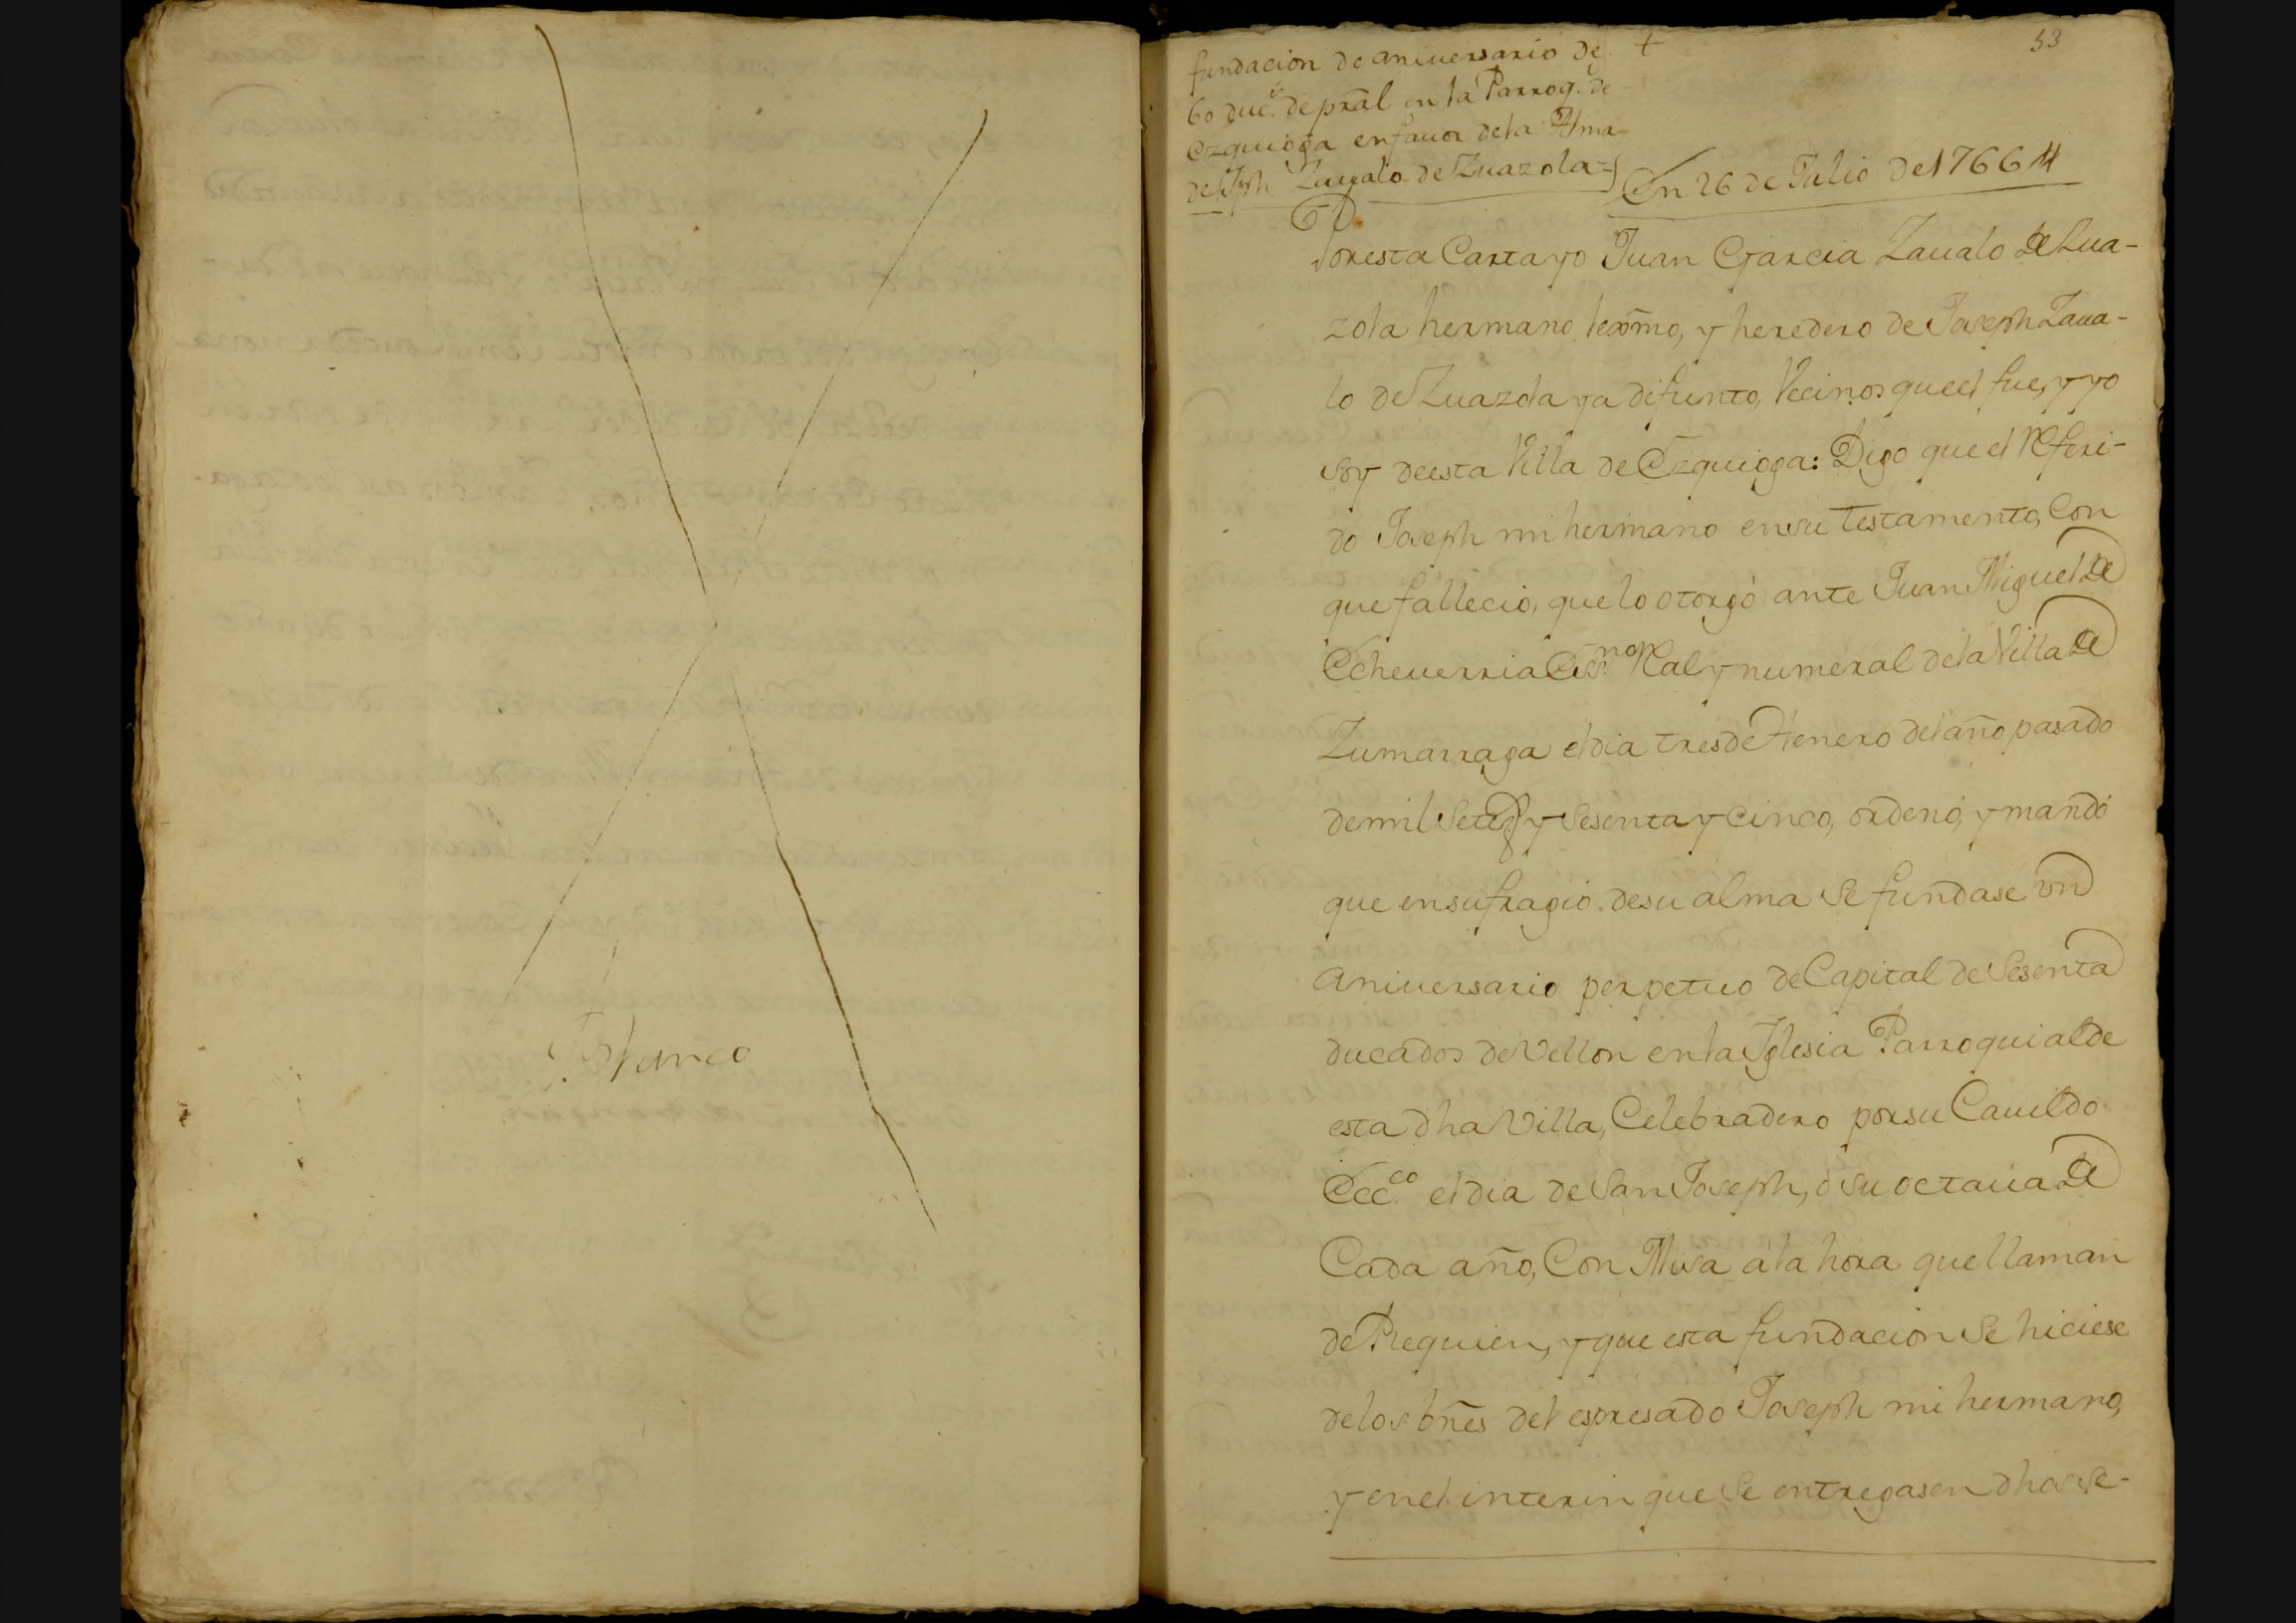 Blanco
53
fundacion de aniversario de +
60 duc.s de pral en la Parroq. de
Ezquioga en favor de la Alma
de Jph Zavalo de Zuazola=
En 26 de Julio de 1766
Por esta Carta yo Juan Garcia Zaualo de Zua-
zola hermano lexmo, y heredero de Joseph Zaua-
lo de Zuazola ya difunto, Vecinos que el fue, y yo
soy de esta Villa de Ezquioga: Digo que el Referi-
do Joseph mi hermano en su Testamento, Con
que fallecio, que lo otorgó ante Juan Miguel de
Echeuerria Ess.no Real y numeral de la Villa de
Zumarraga el dia tres de Henero del año pasado
de mil Setez.s y Sesenta y Cinco, ordenó, y mandó
que en sufragio de su alma Se fundase vn
aniuersario perpetuo de Capital de Sesenta
ducados de Vellon en la Iglesia Parroquial de
esta dha Villa, Celebradero por su Cauildo
Ecc.co el dia de San Joseph, ó su octaua de
Cada año, Con Misa á la hora que llaman
de Requien, y que esta fundacion Se hiciese
de los bñes del espresado Joseph mi hermano,
y en el interin que Se entregasen dhos Se-